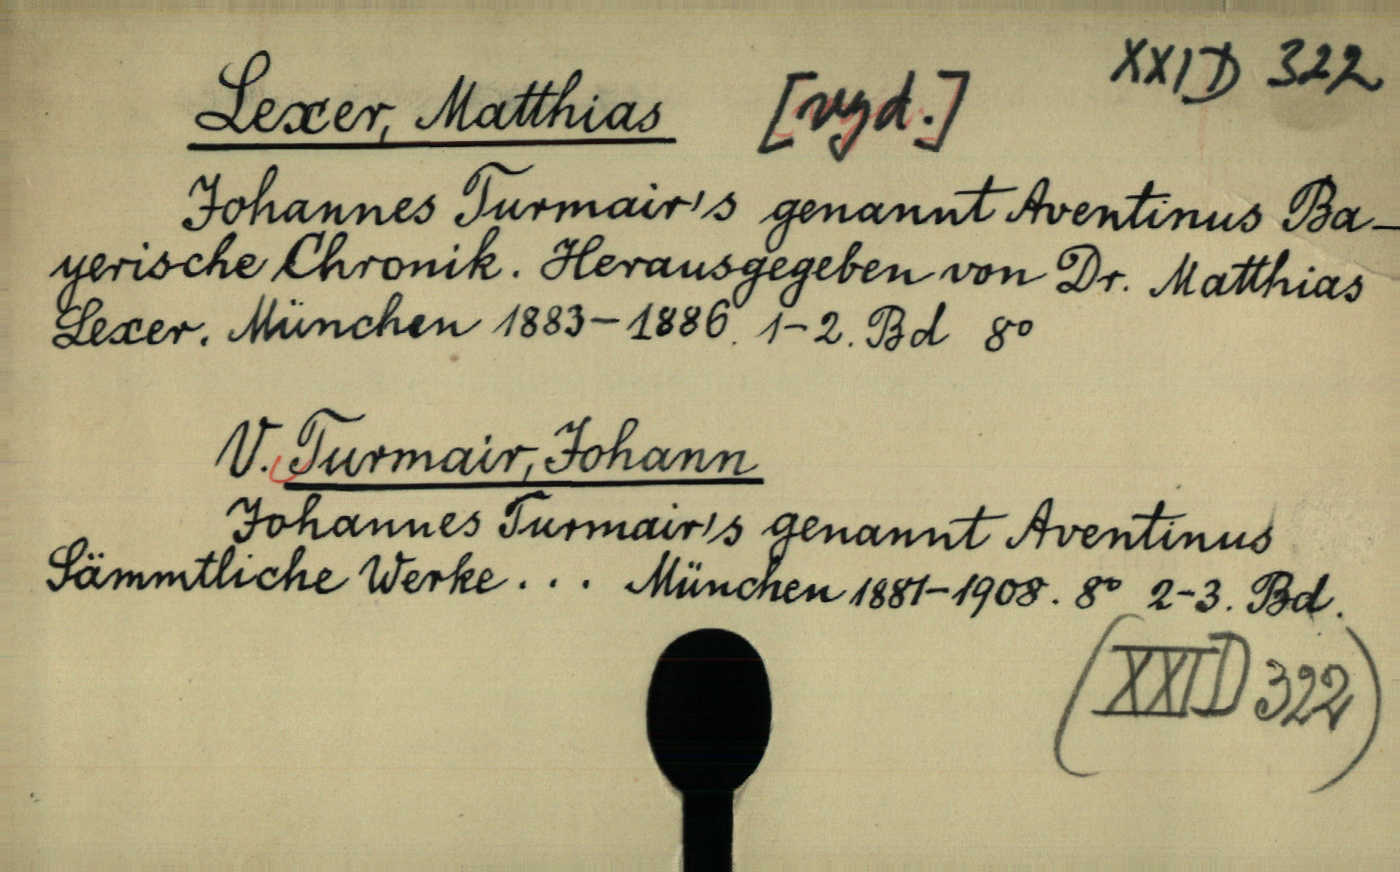 XXI D 322
Lexer, Matthias [vyd.]
Johannes Turmair's genannt Aventinus Ba-
yerische Chronik. Herausgegeben von Dr. Matthias
Lexer. München 1883-1886. 1-2. Bd 8°
V. Turmair, Johann
Johannes Turmair's genannt Aventinus
Sämmtliche Werke... München 1881-1908. 8° 2-3. Bd.
(XXI D 322)